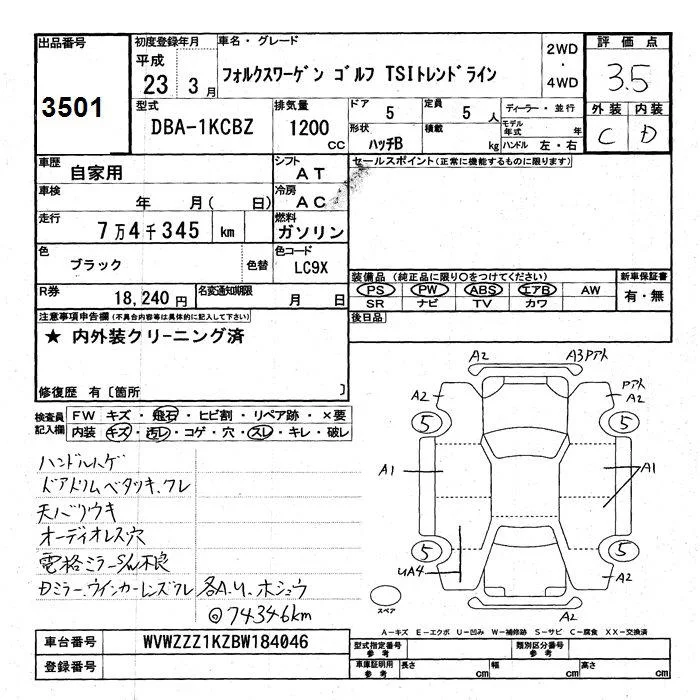 出品番号 3501
初度登録年月 平成 23 3月
車名・グレード フォルクスワーゲン ゴルフ TSIトレンドライン
2WD・4WD
評価点 3.5
型式 DBA-1KCBZ
排気量 1200 CC
ドア 5
定員 5 人
形状 ハッチB
積載 kg
ディーラー・並行
モデル年式 年
ハンドル 左・右
外装 内装
C D
車歴 自家用
シフト AT
セールスポイント(正常に機能するものに限ります)
車検 年 月( 日)
冷房 AC
走行 7万4千345 km
燃料 ガソリン
色 ブラック 色替
色コード LC9X
装備品(純正品に限り○をつけてください) 新車保証書
PS PW ABS エアB AW 有・無
SR ナビ TV カワ
R券 18,240円
名変通知期限 月 日
後日品
注意事項申告欄(不具合内容等は具体的に記入して下さい)
★ 内外装クリーニング済
修復歴 有〔箇所 〕
検査員記入欄
FW キズ・飛石・ヒビ割・リペア跡・×要
内装 キズ・汚レ・コゲ・穴・スレ・キレ・破レ
ハンドルハゲ
ドアトリムベタツキ、ワレ
天バリウキ
オーディオレス穴
電格ミラーS/W不良
Dミラー、ウインカーレンズワレ 各A.U.ホシュウ
◎74346km
A2 A3Pアト
A2 Pアト A2
5 5
A1 A1
5 5
UA4 A2
スペア
A2
A-キズ E-エクボ U-凹み W-補修跡 S-サビ C-腐食 XX-交換済
車台番号 WVWZZZ1KZBW184046
型式指定番号 参考
類別区分番号 参考
登録番号
車庫証明用 参考
長さ cm 幅 cm 高さ cm